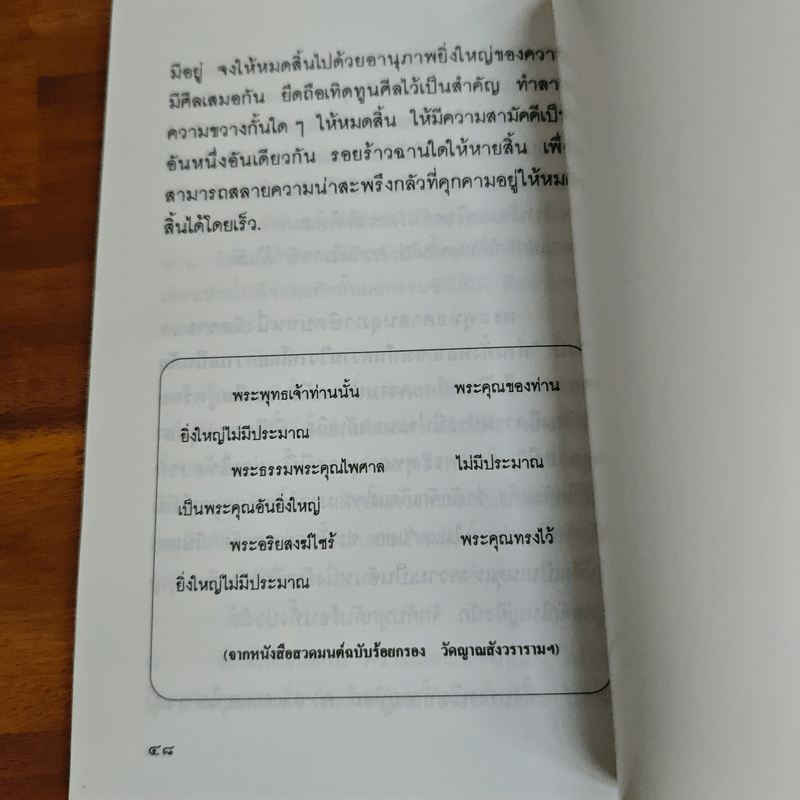 มีอยู่ จงให้หมดสิ้นไปด้วยอานุภาพยิ่งใหญ่ของควา
มีศีลเสมอกัน ยึดถือเทิดทูนศีลไว้เป็นสำคัญ ทำลา
ความขวางกั้นใด ๆ ให้หมดสิ้น ให้มีความสามัคคีเป็น
อันหนึ่งอันเดียวกัน รอยร้าวฉานใดให้หายสิ้น เพื่
สามารถสลายความน่าสะพรึงกลัวที่คุกคามอยู่ให้หม
สิ้นได้โดยเร็ว.
พระพุทธเจ้าท่านนั้น พระคุณของท่าน
ยิ่งใหญ่ไม่มีประมาณ
พระธรรมพระคุณไพศาล ไม่มีประมาณ
เป็นพระคุณอันยิ่งใหญ่
พระอริยสงฆ์ไซร้ พระคุณทรงไว้
ยิ่งใหญ่ไม่มีประมาณ
(จากหนังสือสวดมนต์ฉบับร้อยกรอง วัดญาณสังวรารามฯ)
๔๘